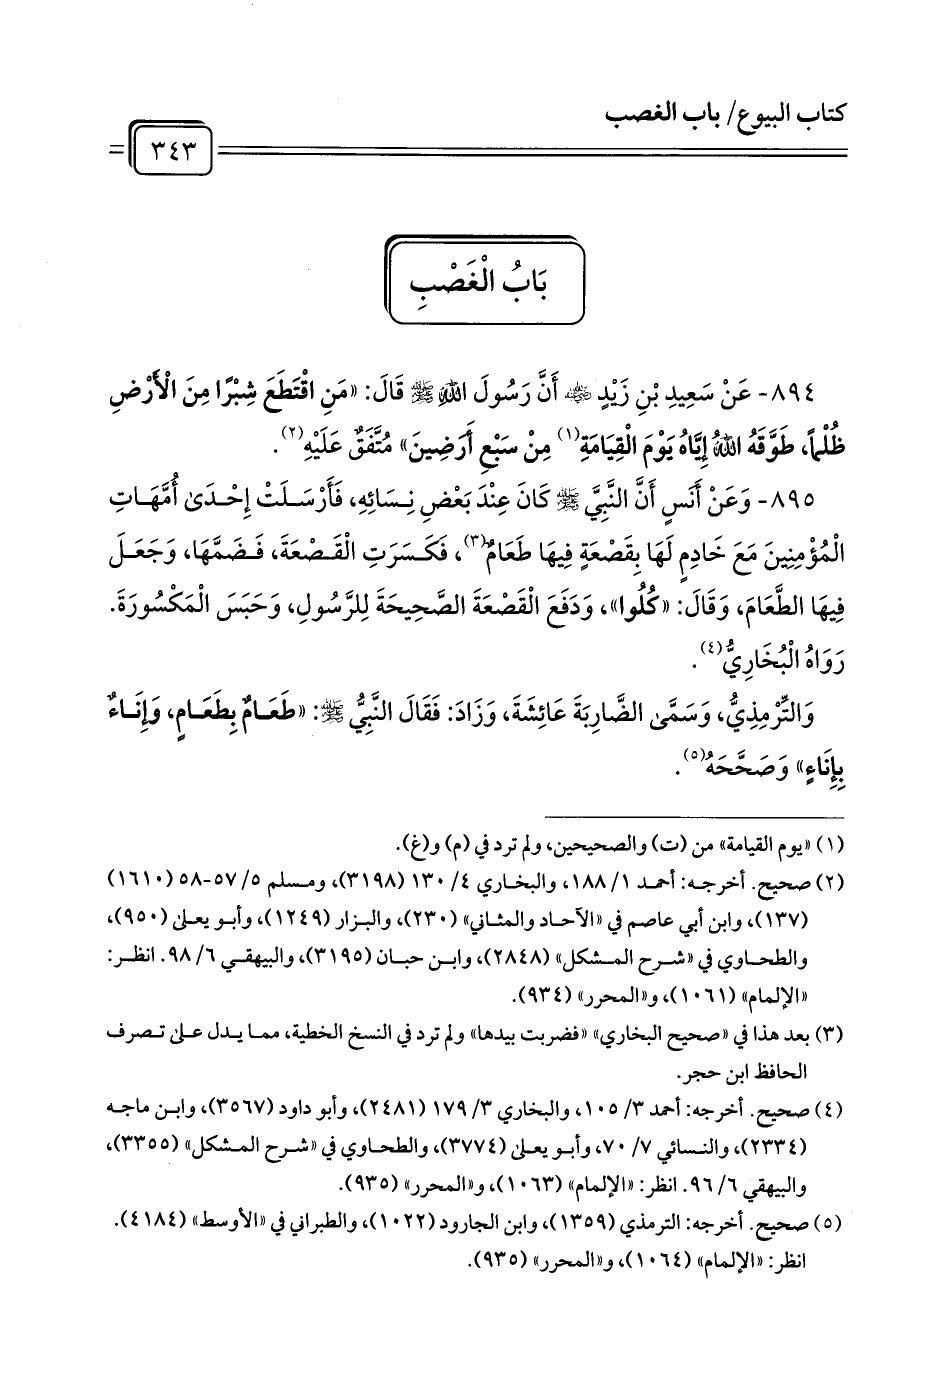 كتاب البيوع/ باب الغصب
٣٤٣
بَابُ الْغَصْبِ
٨٩٤- عَنْ سَعِيدِ بْنِ زَيْدٍ ﵁ أَنَّ رَسُولَ اللهِ ﷺ قَالَ: «مَنِ اقْتَطَعَ شِبْرًا مِنَ الْأَرْضِ
ظُلْمًا، طَوَّقَهُ اللهُ إِيَّاهُ يَوْمَ الْقِيَامَةِ(١) مِنْ سَبْعِ أَرَضِينَ» مُتَّفَقٌ عَلَيْهِ(٢).
٨٩٥- وَعَنْ أَنَسٍ أَنَّ النَّبِيَّ ﷺ كَانَ عِنْدَ بَعْضِ نِسَائِهِ، فَأَرْسَلَتْ إِحْدَى أُمَّهَاتِ
الْمُؤْمِنِينَ مَعَ خَادِمٍ لَهَا بِقَصْعَةٍ فِيهَا طَعَامٌ(٣)، فَكَسَرَتِ الْقَصْعَةَ، فَضَمَّهَا، وَجَعَلَ
فِيهَا الطَّعَامَ، وَقَالَ: «كُلُوا»، وَدَفَعَ الْقَصْعَةَ الصَّحِيحَةَ لِلرَّسُولِ، وَحَبَسَ الْمَكْسُورَةَ.
رَوَاهُ الْبُخَارِيُّ(٤).
وَالتِّرْمِذِيُّ، وَسَمَّى الضَّارِبَةَ عَائِشَةَ، وَزَادَ: فَقَالَ النَّبِيُّ ﷺ: «طَعَامٌ بِطَعَامٍ، وَإِنَاءٌ
بِإِنَاءٍ» وَصَحَّحَهُ(٥).
(١) «يوم القيامة» من (ت) والصحيحين، ولم ترد في (م) و(غ).
(٢) صحيح. أخرجه: أحمد ١/ ١٨٨، والبخاري ٤/ ١٣٠ (٣١٩٨)، ومسلم ٥/ ٥٧-٥٨ (١٦١٠)
(١٣٧)، وابن أبي عاصم في «الآحاد والمثاني» (٢٣٠)، والبزار (١٢٤٩)، وأبو يعلى (٩٥٠)،
والطحاوي في «شرح المشكل» (٢٨٤٨)، وابن حبان (٣١٩٥)، والبيهقي ٦/ ٩٨. انظر:
«الإلمام» (١٠٦١)، و«المحرر» (٩٣٤).
(٣) بعد هذا في «صحيح البخاري» «فضربت بيدها» ولم ترد في النسخ الخطية، مما يدل على تصرف
الحافظ ابن حجر.
(٤) صحيح. أخرجه: أحمد ٣/ ١٠٥، والبخاري ٣/ ١٧٩ (٢٤٨١)، وأبو داود (٣٥٦٧)، وابن ماجه
(٢٣٣٤)، والنسائي ٧/ ٧٠، وأبو يعلى (٣٧٧٤)، والطحاوي في «شرح المشكل» (٣٣٥٥)،
والبيهقي ٦/ ٩٦. انظر: «الإلمام» (١٠٦٣)، و«المحرر» (٩٣٥).
(٥) صحيح. أخرجه: الترمذي (١٣٥٩)، وابن الجارود (١٠٢٢)، والطبراني في «الأوسط» (٤١٨٤).
انظر: «الإلمام» (١٠٦٤)، و«المحرر» (٩٣٥).